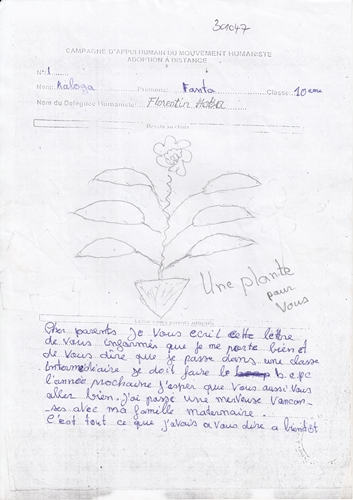 301047
CAMPAGNE D'APPUI HUMAIN DU MOUVEMENT HUMANISTE
ADOPTION A DISTANCE
N° 1
Nom: Kaloga Prénoms: Fanta Classe: 10 eme
Nom du Délégués Humaniste: Florentin
Dessin au choix
Une plante
pour
Vous
Lettre aux parents adoptifs
Cher parents je Vous ecrit cette lettre
de Vous ingormés que je me porte bien et
de Vous dire que je passe dans une classe
Intermediaire je doit faire le b.e.pc
l'année prochaine j'esper que Vous aussi Vous
aller bien. j'ai passé une merveuse Vancon-
ses avec ma famille maternaire.
C'est tout ce que j'avais a Vous dire a bientot